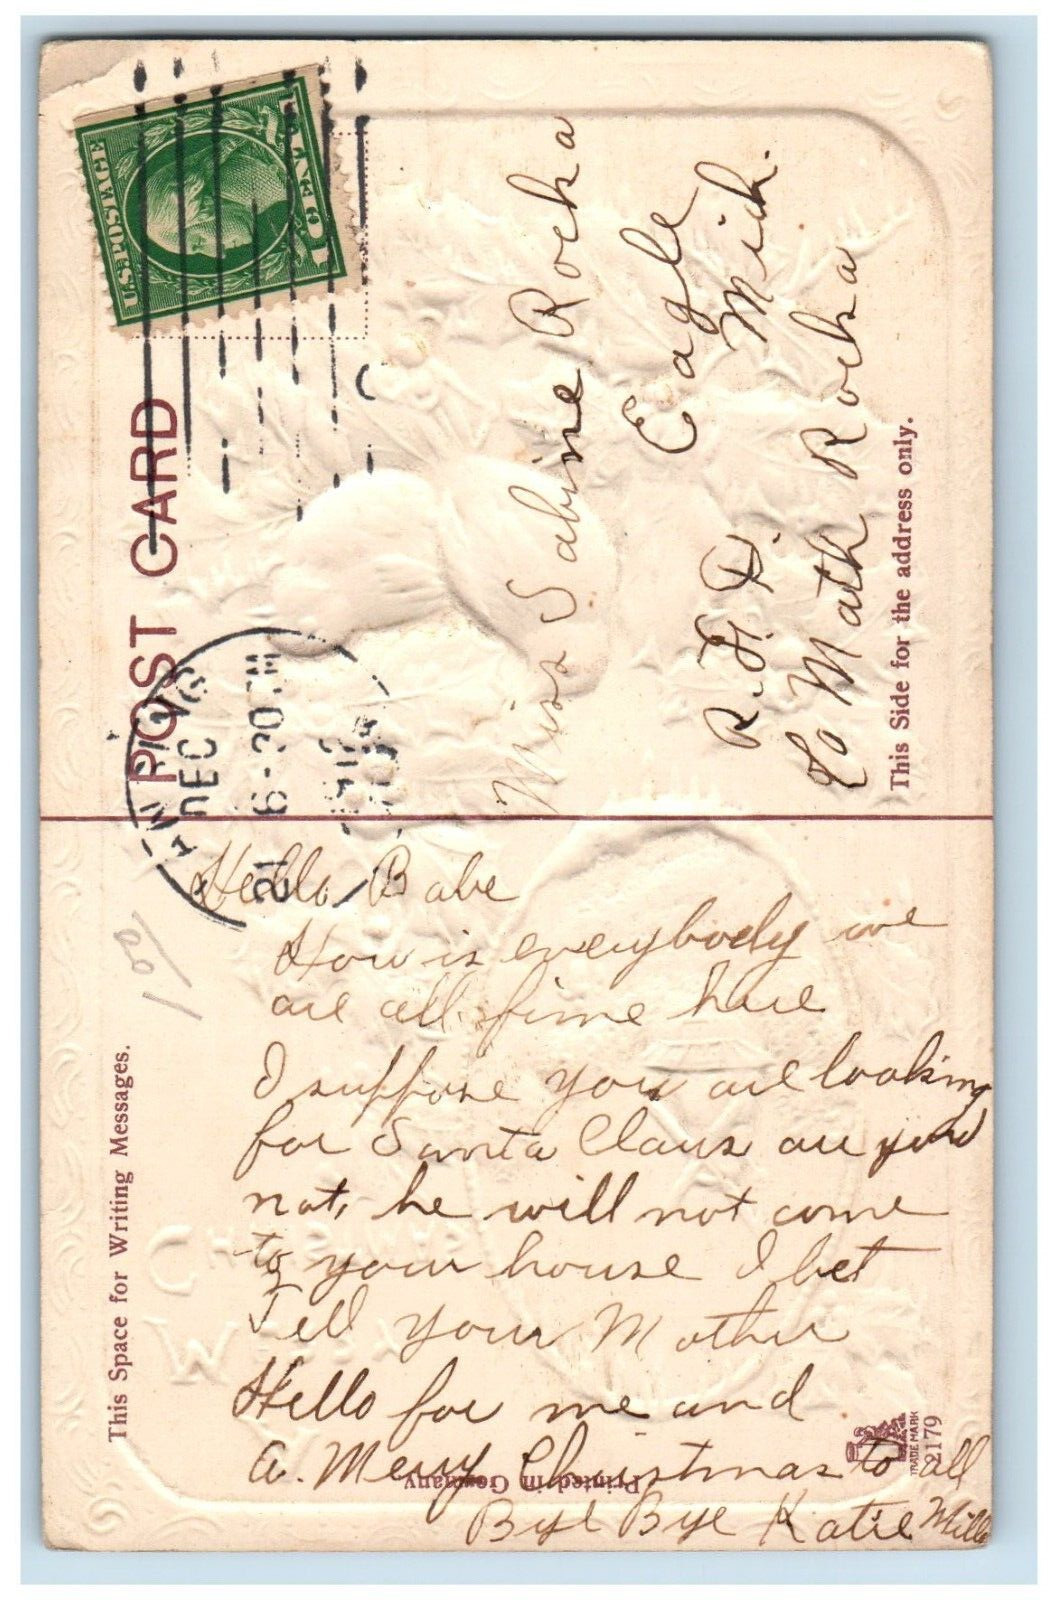 POST CARD
U.S. POSTAGE
LANSING
DEC
21
6-30 PM
1912
Miss Sabine Rocha
Eagle
Mich.
R. F. D.
Co Math Rocha
This Side for the address only.
This Space for Writing Messages.
Hello Babe
How is everybody we
are all fine here
I suppose you are looking
for Santa Claus are you
not, he will not come
to your house I bet
Tell your Mother
Hello for me and
A. Merry Christmas to all
Bye Bye Katie
Printed in Germany
TRADE MARK
2179